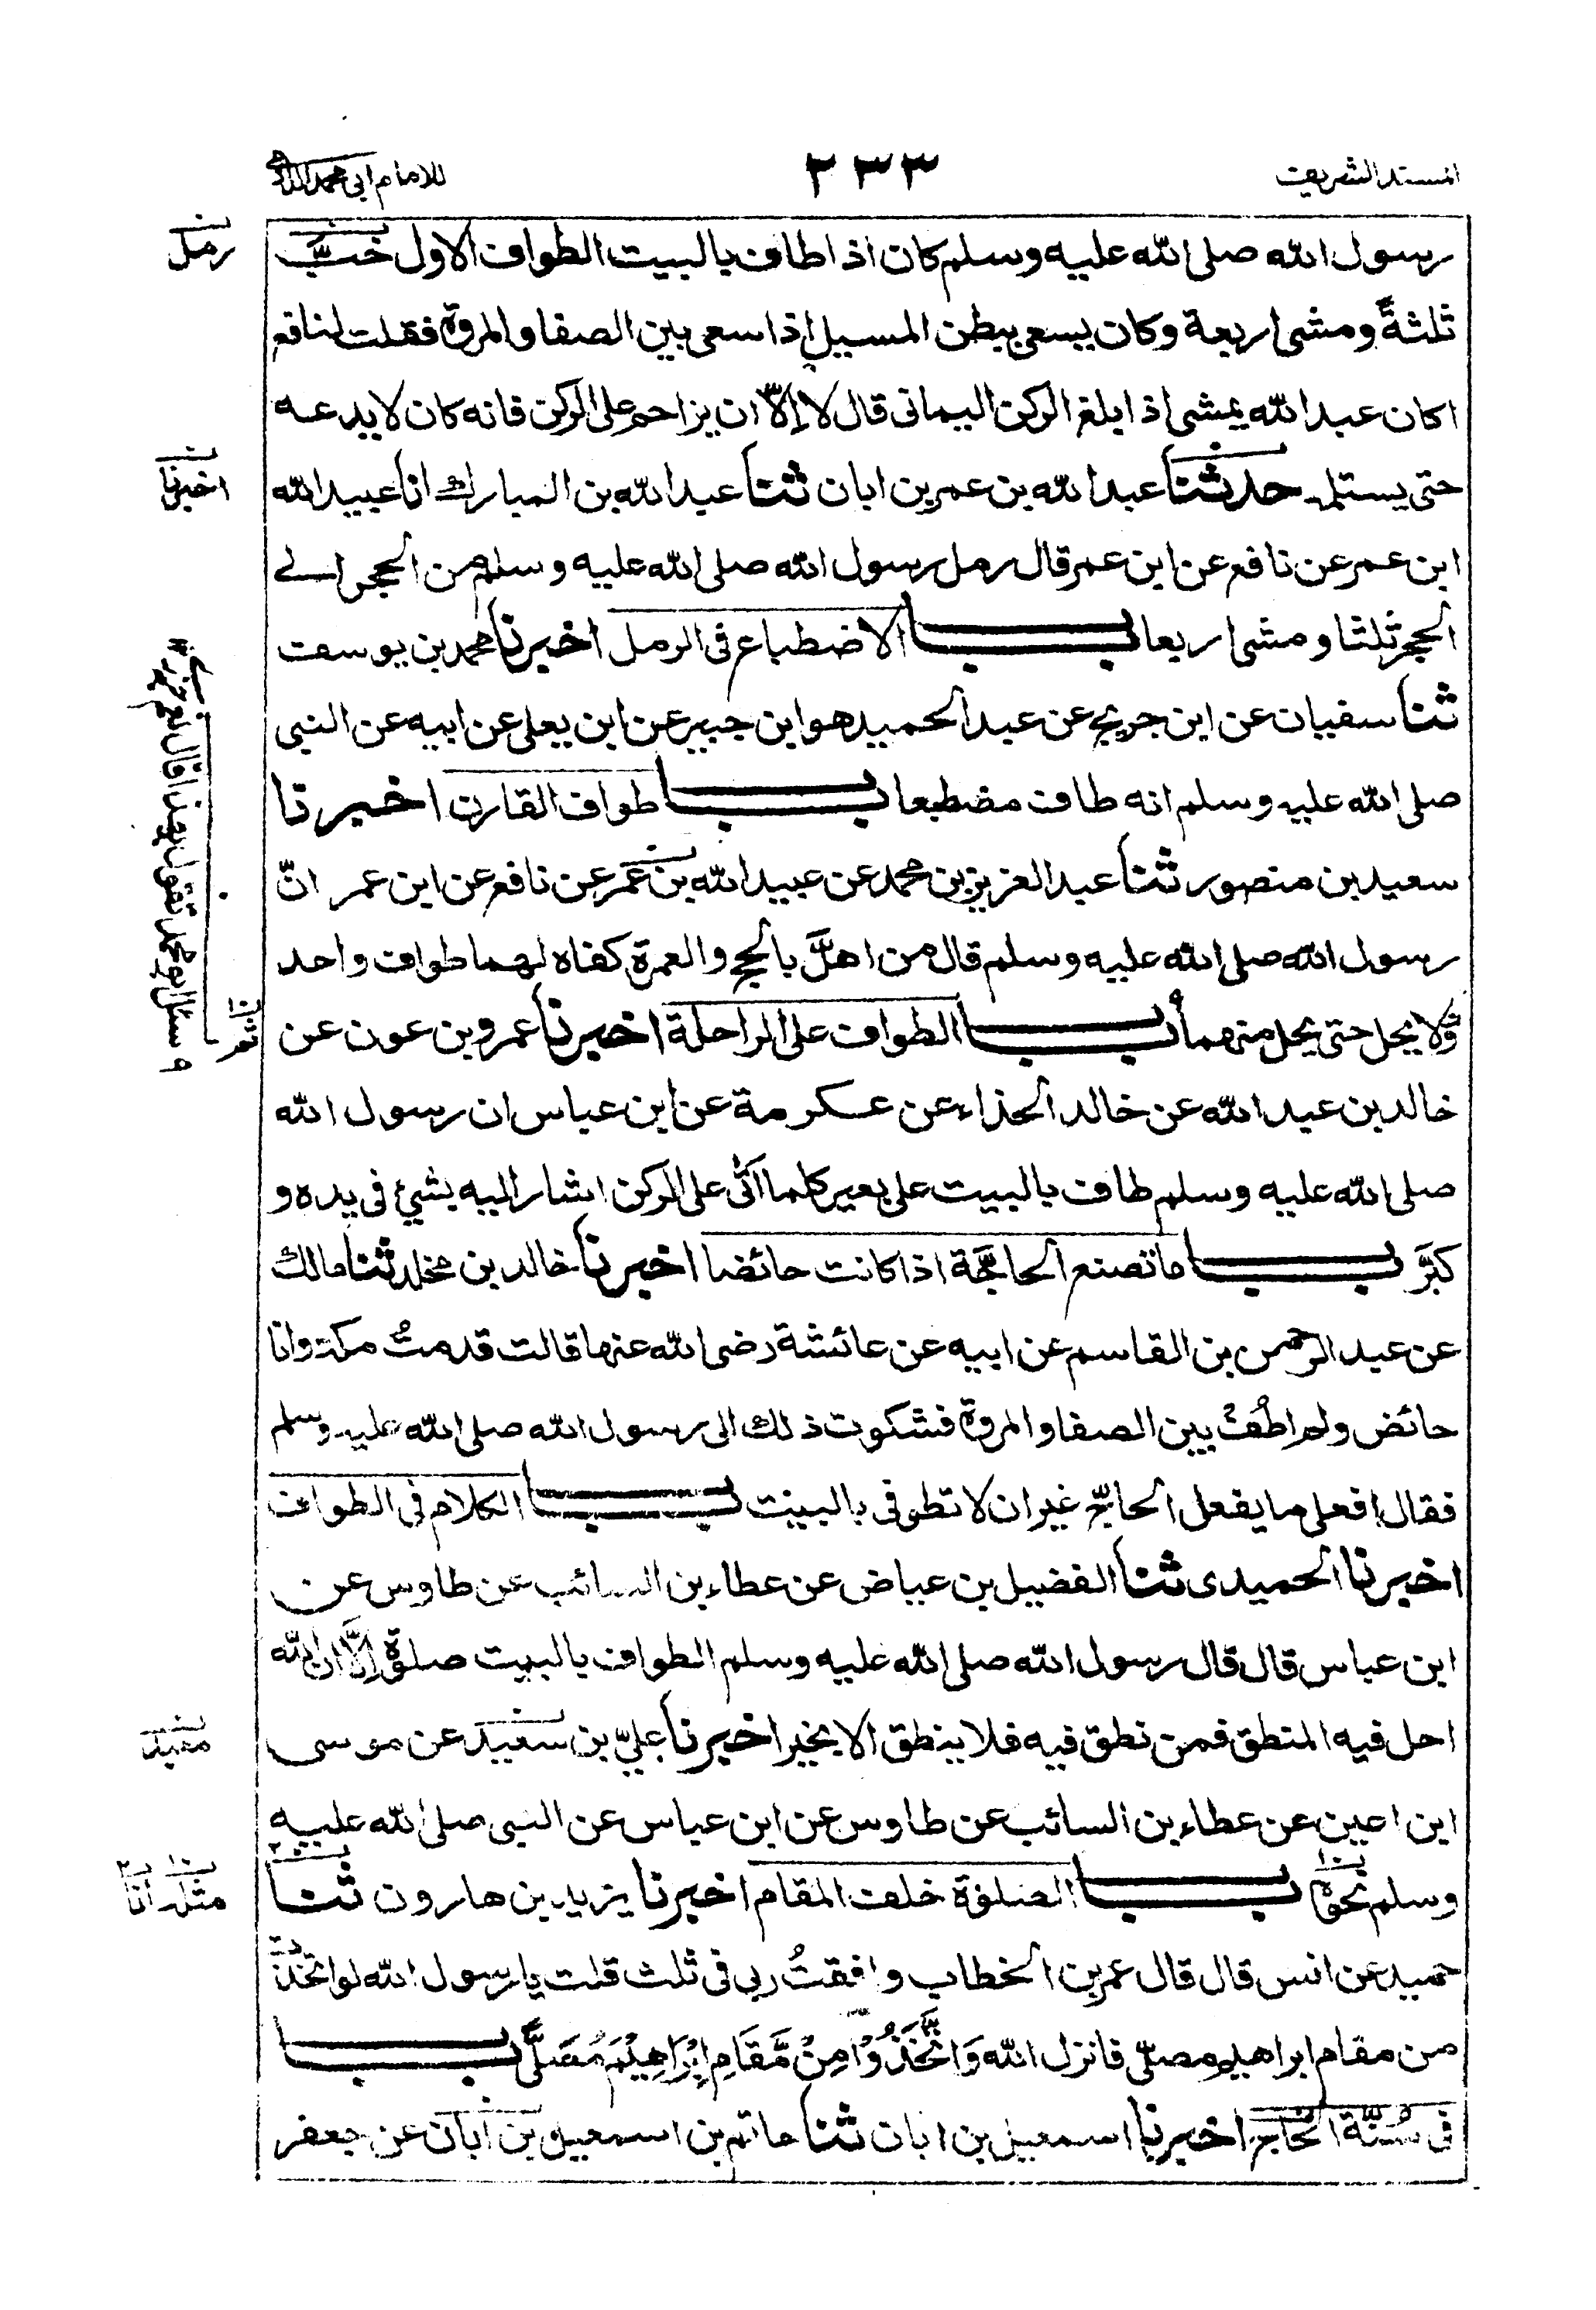 المسند الشريف
٢٣٣
للامام ابي محمد الدارمي
رسول الله صلى الله عليه وسلم كان اذا طاف بالبيت الطواف الاول خبَّ
رمل
ثلثةً ومشى اربعة وكان يسعى ببطن المسيل اذا سعى بين الصفا والمروة فقلت لنافع
اكان عبد الله يمشى اذا بلغ الركن اليمانى قال لا إلّا ان يزاحم على الركن فانه كان لا يدعه
حتى يستلمه حدثنا عبد الله بن عمر بن ابان ثنا عبد الله بن المبارك انا عبيد الله
اخبرنا
ابن عمر عن نافع عن ابن عمر قال رمل رسول الله صلى الله عليه وسلم من الحجر الے
الحجر ثلثا ومشى اربعا باب الاضطباع فى الرمل اخبرنا محمد بن يوسف
ثنا سفيان عن ابن جريج عن عبد الحميد هو ابن جبير عن ابن يعلى عن ابيه عن النبى
صلى الله عليه وسلم انه طاف مضطبعا باب طواف القارن اخبرنا
سعيد بن منصور ثنا عبد العزيز بن محمد عن عبيد الله بن عمر عن نافع عن ابن عمر انّ
رسول الله صلى الله عليه وسلم قال من اهلَّ بالحج والعمرة كفاه لهما طواف واحد
ولا يحل حتى يحل منهما باب الطواف على الراحلة اخبرنا عمرو بن عون عن
ثم
سئل ابو محمد تقول بهذا قال نعم
خالد بن عبد الله عن خالد الحذاء عن عكرمة عن ابن عباس ان رسول الله
صلى الله عليه وسلم طاف بالبيت على بعير كلما اتٰى على الركن اشار اليه بشئ فى يده و
كبَّر باب ما تصنع الحاجّة اذا كانت حائضا اخبرنا خالد بن مخلد ثنا مالك
عن عبد الرحمن بن القاسم عن ابيه عن عائشة رضى الله عنها قالت قدمتُ مكة وانا
حائض ولم اطُفْ بين الصفا والمروة فشكوت ذلك الى رسول الله صلى الله عليه وسلم
فقال افعلى ما يفعل الحاجّ غير ان لا تطوفى بالبيت باب الكلام فى الطواف
اخبرنا الحميدى ثنا الفضيل بن عياض عن عطاء بن السائب عن طاوس عن
ابن عباس قال قال رسول الله صلى الله عليه وسلم الطواف بالبيت صلوة إلَّا ان الله
احل فيه المنطق فمن نطق فيه فلا ينطق الا بخير اخبرنا عليّ بن سعيد عن موسى
معبد
ابن اعين عن عطاء بن السائب عن طاوس عن ابن عباس عن النبى صلى الله عليه
وسلم نحوه باب الصلوة خلف المقام اخبرنا يزيد بن هارون ثنا
مثله انا
حميد عن انس قال قال عمر بن الخطاب وافقتُ ربى فى ثلث قلت يا رسول الله لو اتخذت
من مقام ابراهيم مصلّى فانزل الله وَاتَّخَذُوْا مِنْ مَّقَامِ اِبْرَاهِيْمَ مُصَلًّى باب
فى سُنّة الحاج اخبرنا اسمعيل بن ابان ثنا حاتم بن اسمعيل بن ابان عن جعفر